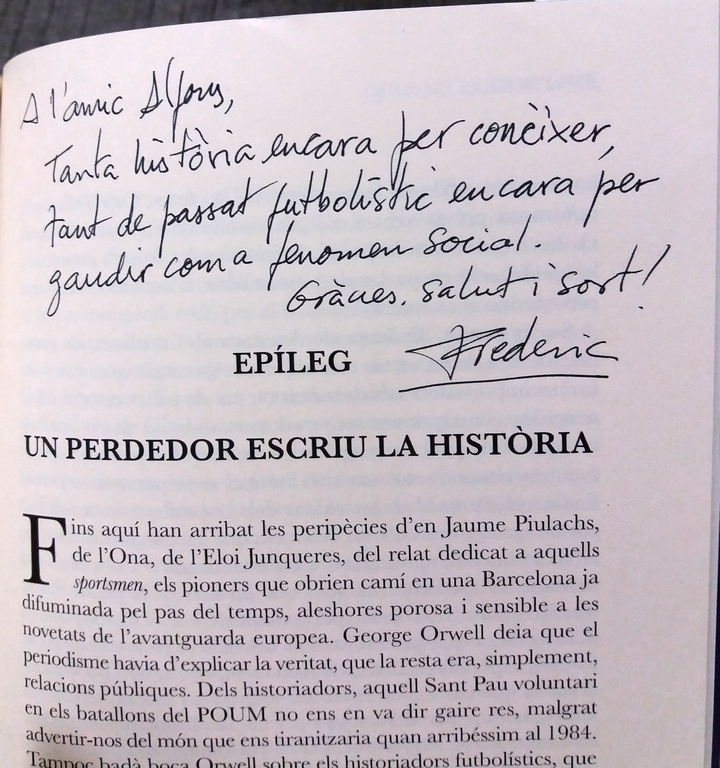 A l'amic Alfons,
Tanta història encara per conèixer,
tant de passat futbolístic encara per
gaudir com a fenomen social.
Gràcies. Salut i sort!
Frederic
EPÍLEG
UN PERDEDOR ESCRIU LA HISTÒRIA
Fins aquí han arribat les peripècies d'en Jaume Piulachs,
de l'Ona, de l'Eloi Junqueres, del relat dedicat a aquells
sportsmen, els pioners que obrien camí en una Barcelona ja
difuminada pel pas del temps, aleshores porosa i sensible a les
novetats de l'avantguarda europea. George Orwell deia que el
periodisme havia d'explicar la veritat, que la resta era, simplement,
relacions públiques. Dels historiadors, aquell Sant Pau voluntari
en els batallons del POUM no ens en va dir gaire res, malgrat
advertir-nos del món que ens tiranitzaria quan arribéssim al 1984.
Tampoc badà boca Orwell sobre els historiadors futbolístics, que